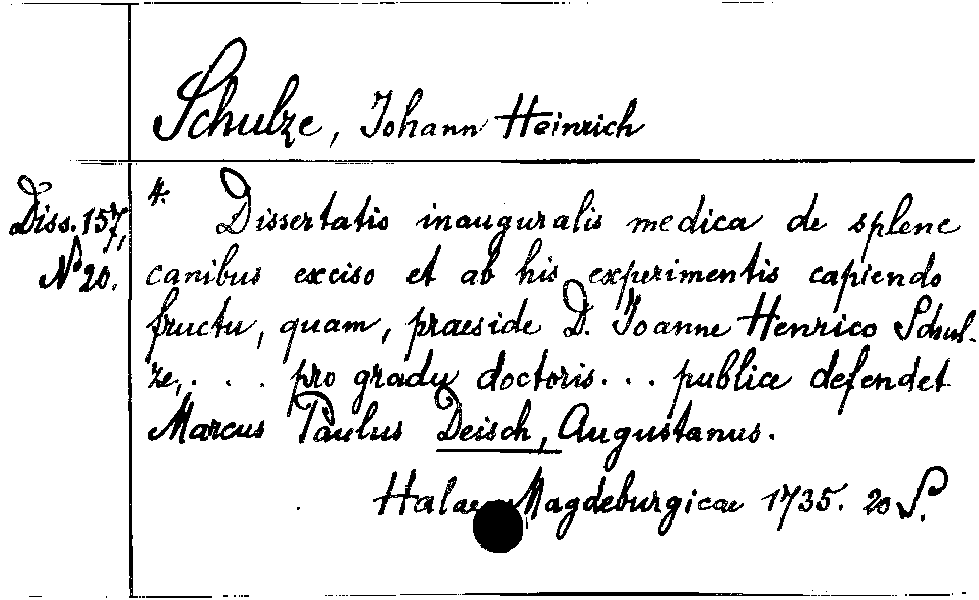 Schulze, Johann Heinrich
Diss. 157,
No 20.
4. Dissertatio inauguralis medica de splene
canibus exciso et ab his experimentis capiendo
fructu, quam, praeside D. Joanne Henrico Schul-
ze, . . . pro gradu doctoris . . . publice defendet
Marcus Paulus Deisch, Augustanus.
Halae Magdeburgicae 1735. 20 S.